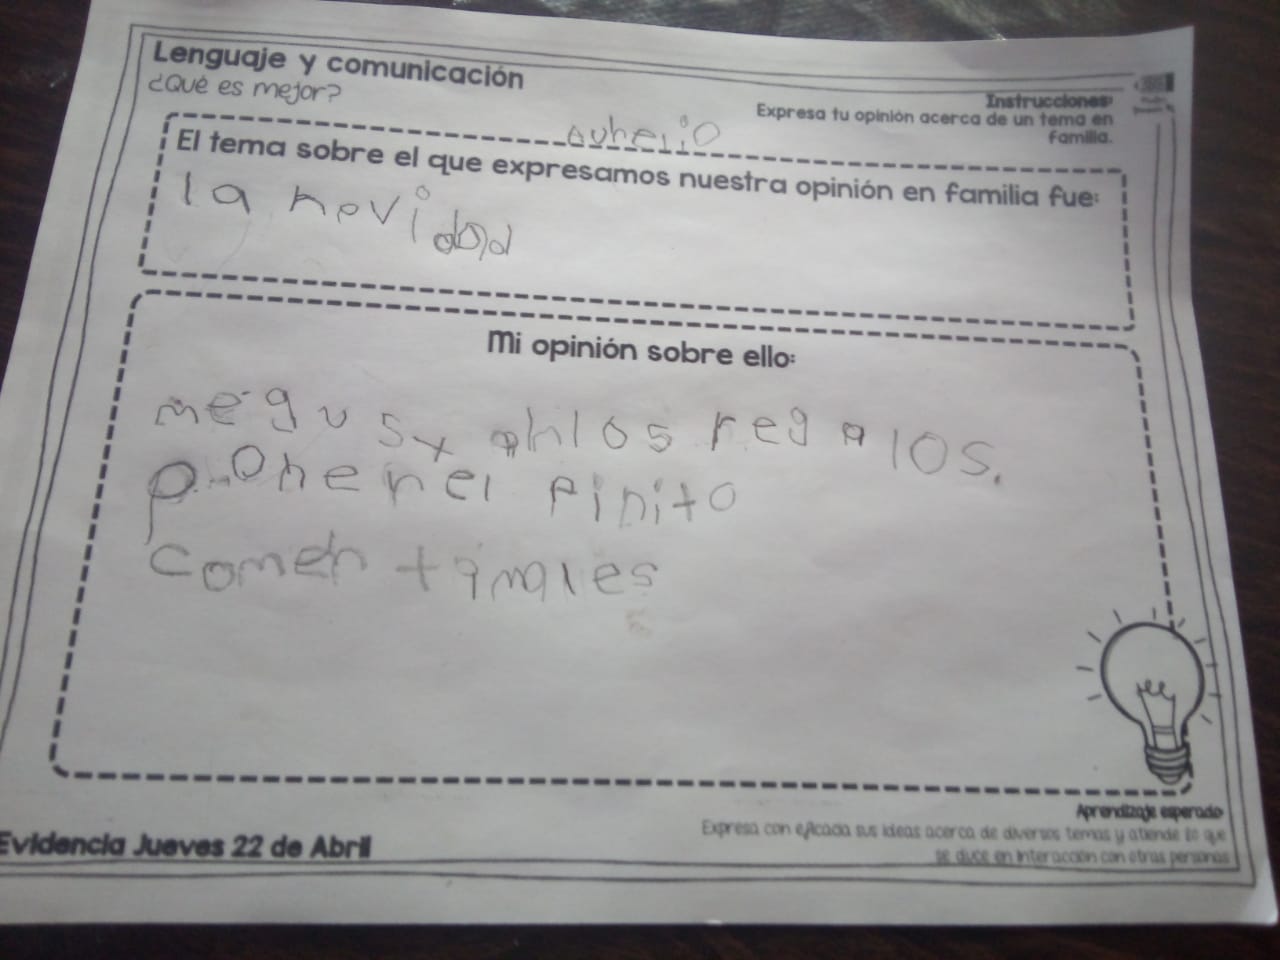 Lenguaje y comunicación
¿Qué es mejor?
Instrucciones:
Expresa tu opinión acerca de un tema en
familia.
auhelio
El tema sobre el que expresamos nuestra opinión en familia fue:
la novidad
Mi opinión sobre ello:
me gustanlos regalos.
ponenel pinito
comen tamales
Evidencia Jueves 22 de Abril
Aprendizaje esperado
Expresa con eficacia sus ideas acerca de diversos temas y atiende lo que
se duce en interacción con otras personas